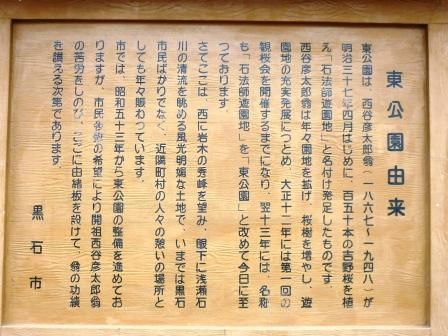 東公園由来
東公園は、西谷彦太郎翁(一八六七〜一九四八)が
明治三十七年四月はじめに、百五十本の吉野桜を植
え「石法師遊園地」と名付け発足したものです。
西谷彦太郎翁は年々園地を拡げ、桜樹を増やし、遊
園地の充実発展につとめ、大正十二年には第一回の
観桜会を開催するまでになり、翌十三年には、名称
も「石法師遊園地」を「東公園」と改めて今日に至
つております。
さてここは、西に岩木の秀峰を望み、眼下に浅瀬石
川の清流を眺める風光明媚な土地で、いまでは黒石
市民ばかりでなく、近隣町村の人々の憩いの場所と
しても年々賑わつています。
市では、昭和五十三年から東公園の整備を進めてお
りますが、市民多数の希望により開祖西谷彦太郎翁
の苦労をしのび、ここに由緒板を設けて、翁の功績
を讃える次第であります
黒石市